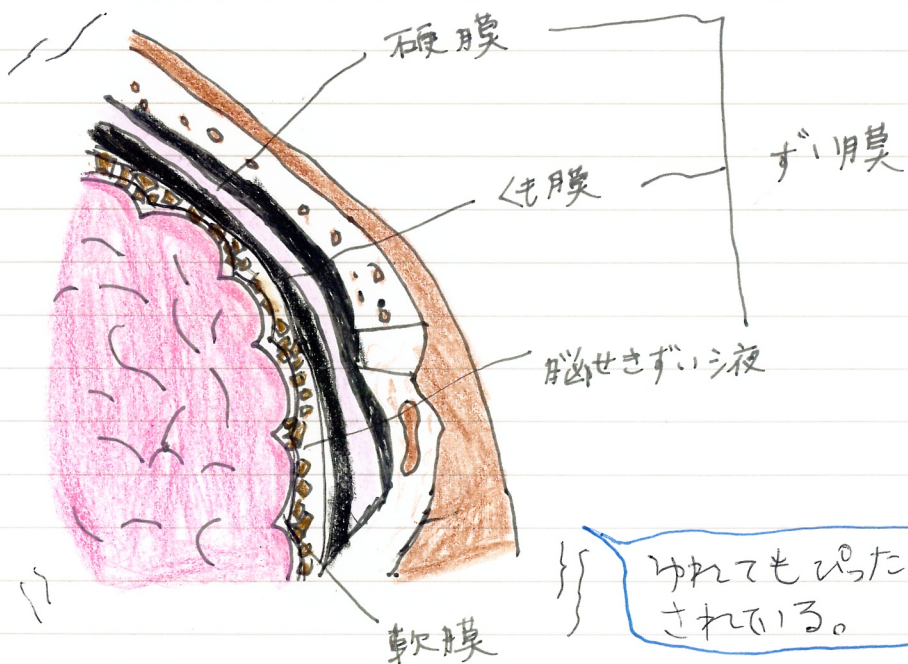 硬膜
くも膜
ずい膜
脳せきずい液
軟膜
ゆれてもぴった
されている。